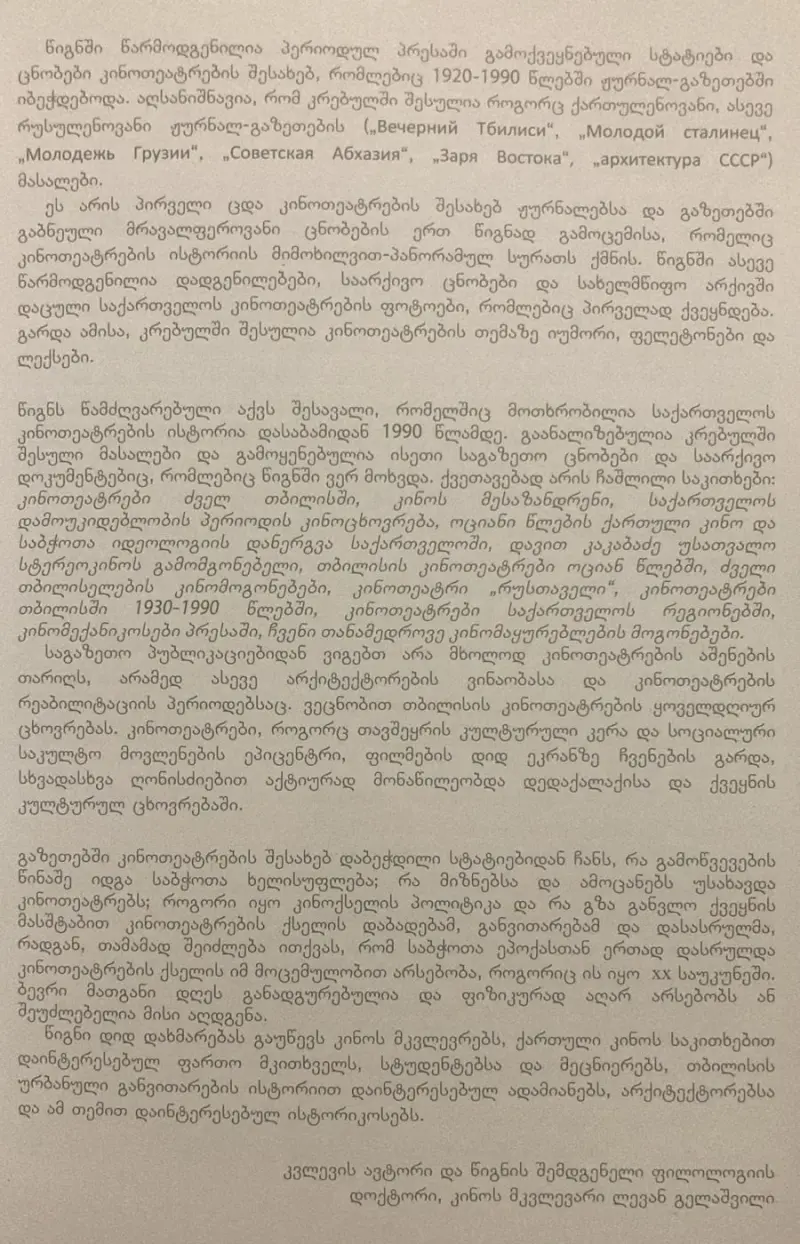 წიგნში წარმოდგენილია პერიოდულ პრესაში გამოქვეყნებული სტატიები და
ცნობები კინოთეატრების შესახებ, რომლებიც 1920-1990 წლებში ჟურნალ-გაზეთებში
იბეჭდებოდა. აღსანიშნავია, რომ კრებულში შესულია როგორც ქართულენოვანი, ასევე
რუსულენოვანი ჟურნალ-გაზეთების („Вечерний Тбилиси“, „Молодой сталинец“,
„Молодежь Грузии“, „Советская Абхазия“, „Заря Востока“, „архитектура СССР“)
მასალები.
ეს არის პირველი ცდა კინოთეატრების შესახებ ჟურნალებსა და გაზეთებში
გაბნეული მრავალფეროვანი ცნობების ერთ წიგნად გამოცემისა, რომელიც
კინოთეატრების ისტორიის მიმოხილვით-პანორამულ სურათს ქმნის. წიგნში ასევე
წარმოდგენილია დადგენილებები, საარქივო ცნობები და სახელმწიფო არქივში
დაცული საქართველოს კინოთეატრების ფოტოები, რომლებიც პირველად ქვეყნდება.
გარდა ამისა, კრებულში შესულია კინოთეატრების თემაზე იუმორი, ფელეტონები და
ლექსები.
წიგნს წამძღვარებული აქვს შესავალი, რომელშიც მოთხრობილია საქართველოს
კინოთეატრების ისტორია დასაბამიდან 1990 წლამდე. გაანალიზებულია კრებულში
შესული მასალები და გამოყენებულია ისეთი საგაზეთო ცნობები და საარქივო
დოკუმენტებიც, რომლებიც წიგნში ვერ მოხვდა. ქვეთავებად არის ჩაშლილი საკითხები:
კინოთეატრები ძველ თბილისში, კინოს მესაზანდრენი, საქართველოს
დამოუკიდებლობის პერიოდის კინოცხოვრება, ოციანი წლების ქართული კინო და
საბჭოთა იდეოლოგიის დანერგვა საქართველოში, დავით კაკაბაძე უსათვალო
სტერეოკინოს გამომგონებელი, თბილისის კინოთეატრები ოციან წლებში, ძველი
თბილისელების კინომოგონებები, კინოთეატრი „რუსთაველი“, კინოთეატრები
თბილისში 1930-1990 წლებში, კინოთეატრები საქართველოს რეგიონებში,
კინომექანიკოსები პრესაში, ჩვენი თანამედროვე კინომაყურებლების მოგონებები.
საგაზეთო პუბლიკაციებიდან ვიგებთ არა მხოლოდ კინოთეატრების აშენების
თარიღს, არამედ ასევე არქიტექტორების ვინაობასა და კინოთეატრების
რეაბილიტაციის პერიოდებსაც. ვეცნობით თბილისის კინოთეატრების ყოველდღიურ
ცხოვრებას. კინოთეატრები, როგორც თავშეყრის კულტურული კერა და სოციალური
საკულტო მოვლენების ეპიცენტრი, ფილმების დიდ ეკრანზე ჩვენების გარდა,
სხვადასხვა ღონისძიებით აქტიურად მონაწილეობდა დედაქალაქისა და ქვეყნის
კულტურულ ცხოვრებაში.
გაზეთებში კინოთეატრების შესახებ დაბეჭდილი სტატიებიდან ჩანს, რა გამოწვევების
წინაშე იდგა საბჭოთა ხელისუფლება; რა მიზნებსა და ამოცანებს უსახავდა
კინოთეატრებს; როგორი იყო კინოქსელის პოლიტიკა და რა გზა განვლო ქვეყნის
მასშტაბით კინოთეატრების ქსელის დაბადებამ, განვითარებამ და დასასრულმა,
რადგან, თამამად შეიძლება ითქვას, რომ საბჭოთა ეპოქასთან ერთად დასრულდა
კინოთეატრების ქსელის იმ მოცემულობით არსებობა, როგორიც ის იყო xx საუკუნეში.
ბევრი მათგანი დღეს განადგურებულია და ფიზიკურად აღარ არსებობს ან
შეუძლებელია მისი აღდგენა.
წიგნი დიდ დახმარებას გაუწევს კინოს მკვლევრებს, ქართული კინოს საკითხებით
დაინტერესებულ ფართო მკითხველს, სტუდენტებსა და მეცნიერებს, თბილისის
ურბანული განვითარების ისტორიით დაინტერესებულ ადამიანებს, არქიტექტორებსა
და ამ თემით დაინტერესებულ ისტორიკოსებს.
კვლევის ავტორი და წიგნის შემდგენელი ფილოლოგიის
დოქტორი, კინოს მკვლევარი ლევან გელაშვილი